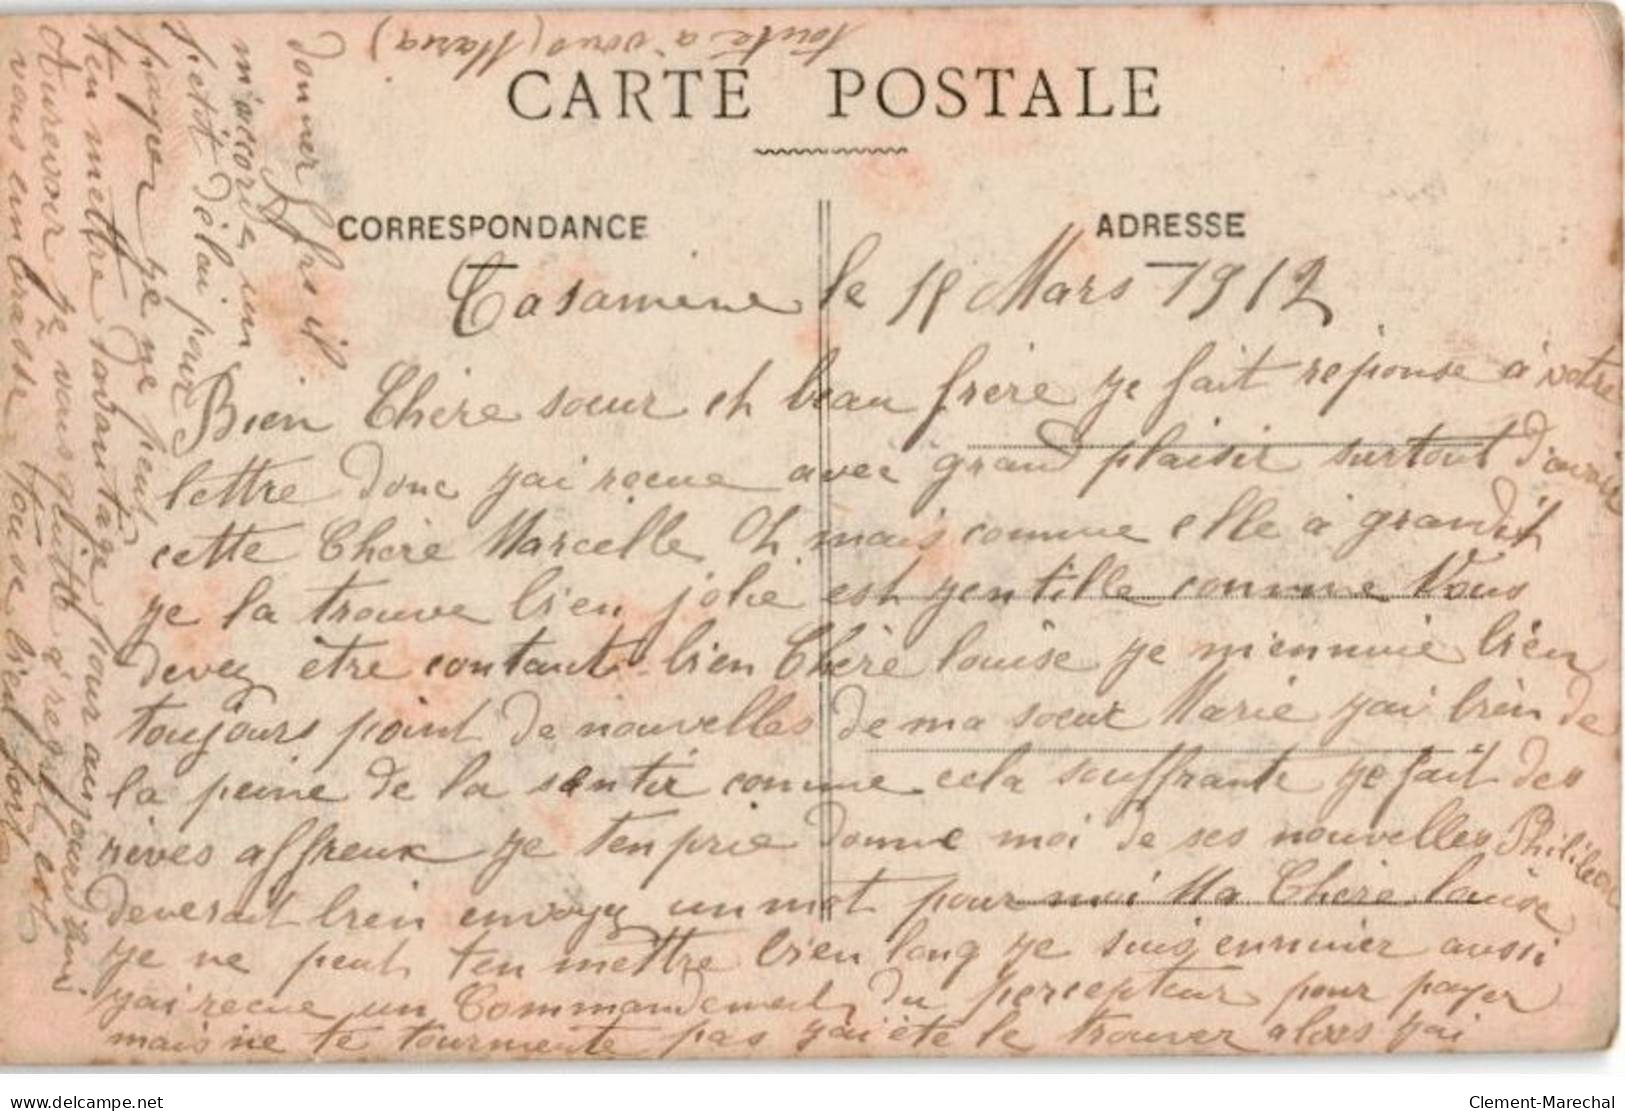 CARTE POSTALE
CORRESPONDANCE
ADRESSE
Casamene le 18 Mars 1912
Bien Chère sœur et beau frère je fait reponse à votre
lettre donc j'ai recue avec grand plaisir surtout d'avoir
cette Chère Marcelle Oh mais comme elle à grandit
je la trouve bien jolie est gentille comme Vous
devez être contante bien Chère Louise je m'ennuie bien
toujours point de nouvelles de ma sœur Marie j'ai bien de
la peine de la sentir comme cela souffrante je fait des
rèves affreux je ten prie donne moi de ses nouvelles
deverait bien envoyez un mot pour moi Ma Chère Louise
je ne peut ten mettre bien long je suis ennuier aussi
j'ai recue un Commandement du percepteur pour payer
mais ne te tourmente pas j'ai été le trouver alors j'ai
donner 4 frs il
m'accorde un
petit délai pour
payer je ne peut
ten mettre davantage pour aujourd'hui
Aurevoir je vous quitte à regret est
vous embrasse tous bien fort
toute à vous (Maria)
Clement-Marechal
www.delcampe.net